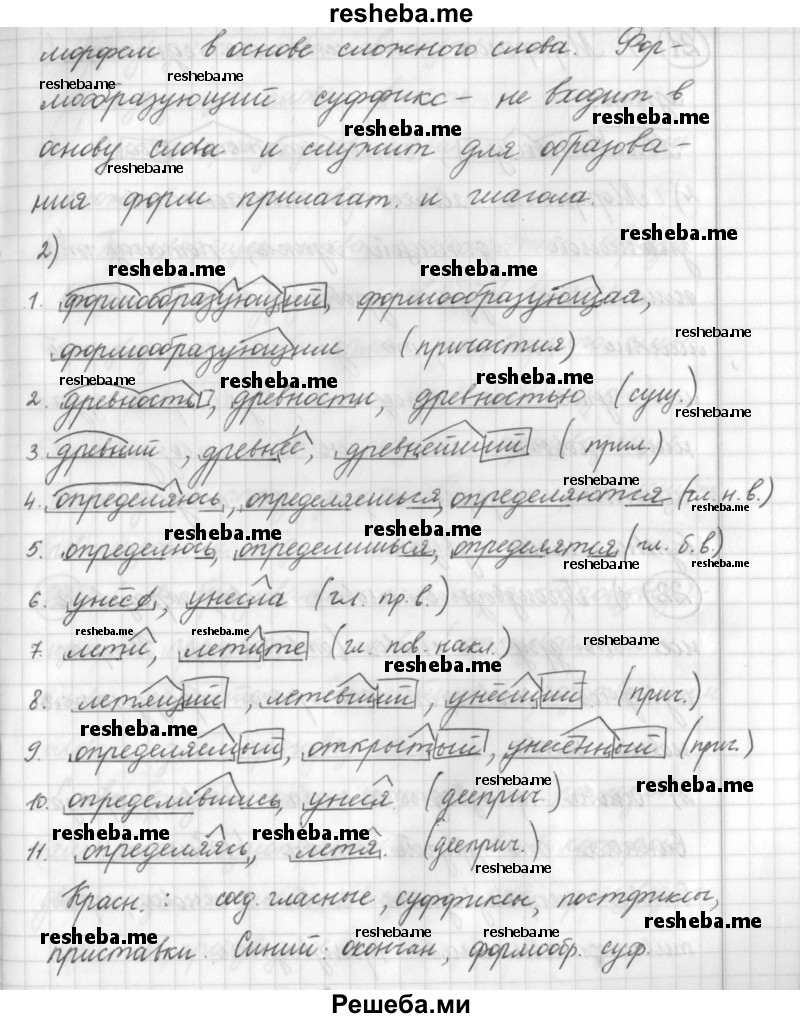 resheba.me
морфем в основе сложного слова. Фор-
resheba.me resheba.me
мообразующий суффикс – не входит в
resheba.me resheba.me
основу слова и служит для образова-
resheba.me
ния форм прилагат. и глагола.
resheba.me
2)
resheba.me resheba.me
1. формообразующий, формообразующая,
resheba.me
формообразующим (причастия)
resheba.me resheba.me resheba.me
2. древность, древности, древностью (сущ.)
resheba.me
3. древний, древнее, древнейший (прил.)
resheba.me
4. определяюсь, определяешься, определяются (гл. н. в.)
resheba.me
resheba.me resheba.me
5. определюсь, определишься, определятся (гл. б. в.)
resheba.me resheba.me
6. унёс, унесла (гл. пр. в.)
resheba.me resheba.me resheba.me
7. лети, летите (гл. пов. накл.)
resheba.me
8. летящий, летевший, унёсший (прич.)
resheba.me
9. определяемый, открытый, унесённый (прич.)
resheba.me resheba.me
10. определившись, унеся. (дееприч.)
resheba.me resheba.me
11. определяясь, летя. (дееприч.)
resheba.me
Красн.: соед. гласные, суффиксы, постфиксы,
resheba.me resheba.me resheba.me
приставки. Синий: окончан, формообр. суф.
resheba.me
Решеба.ми